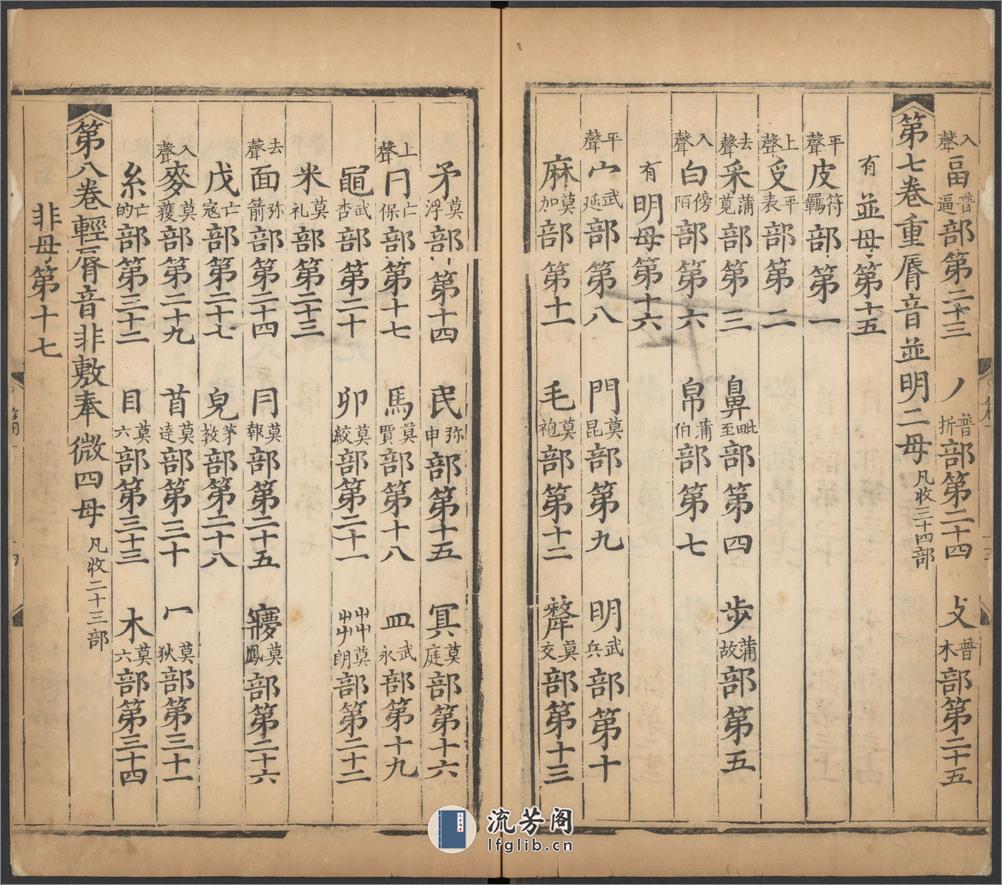 入聲畐普逼部第二十三 丿普折部第二十四 攴普木部第二十五
第七卷重脣音並明二母凡收三十四部
有並母第十五
平聲皮符羈部第一
上聲𠬪平表部第二
去聲采蒲莧部第三 鼻毗至部第四 步蒲故部第五
入聲白傍陌部第六 帛蒲伯部第七
有明母第十六
平聲宀武延部第八 門莫昆部第九 明武兵部第十
麻莫加部第十一 毛莫袍部第十二 犛莫交部第十三
矛莫浮部第十四 民弥申部第十五 冥莫庭部第十六
上聲冃亡保部第十七 馬莫賈部第十八 皿武永部第十九
黽武杏部第二十 卯莫絞部第二十一 茻莫朗部第二十二
米莫礼部第二十三
去聲面弥箭部第二十四 冃莫報部第二十五 㝱莫鳳部第二十六
戊亡寇部第二十七 皃茅教部第二十八
入聲麥莫獲部第二十九 𥄕莫達部第三十 冖莫狄部第三十一
糸亡的部第三十二 目莫六部第三十三 木莫六部第三十四
第八卷輕脣音非敷奉微四母凡收二十三部
非母第十七
流芳阁
lfglib.cn